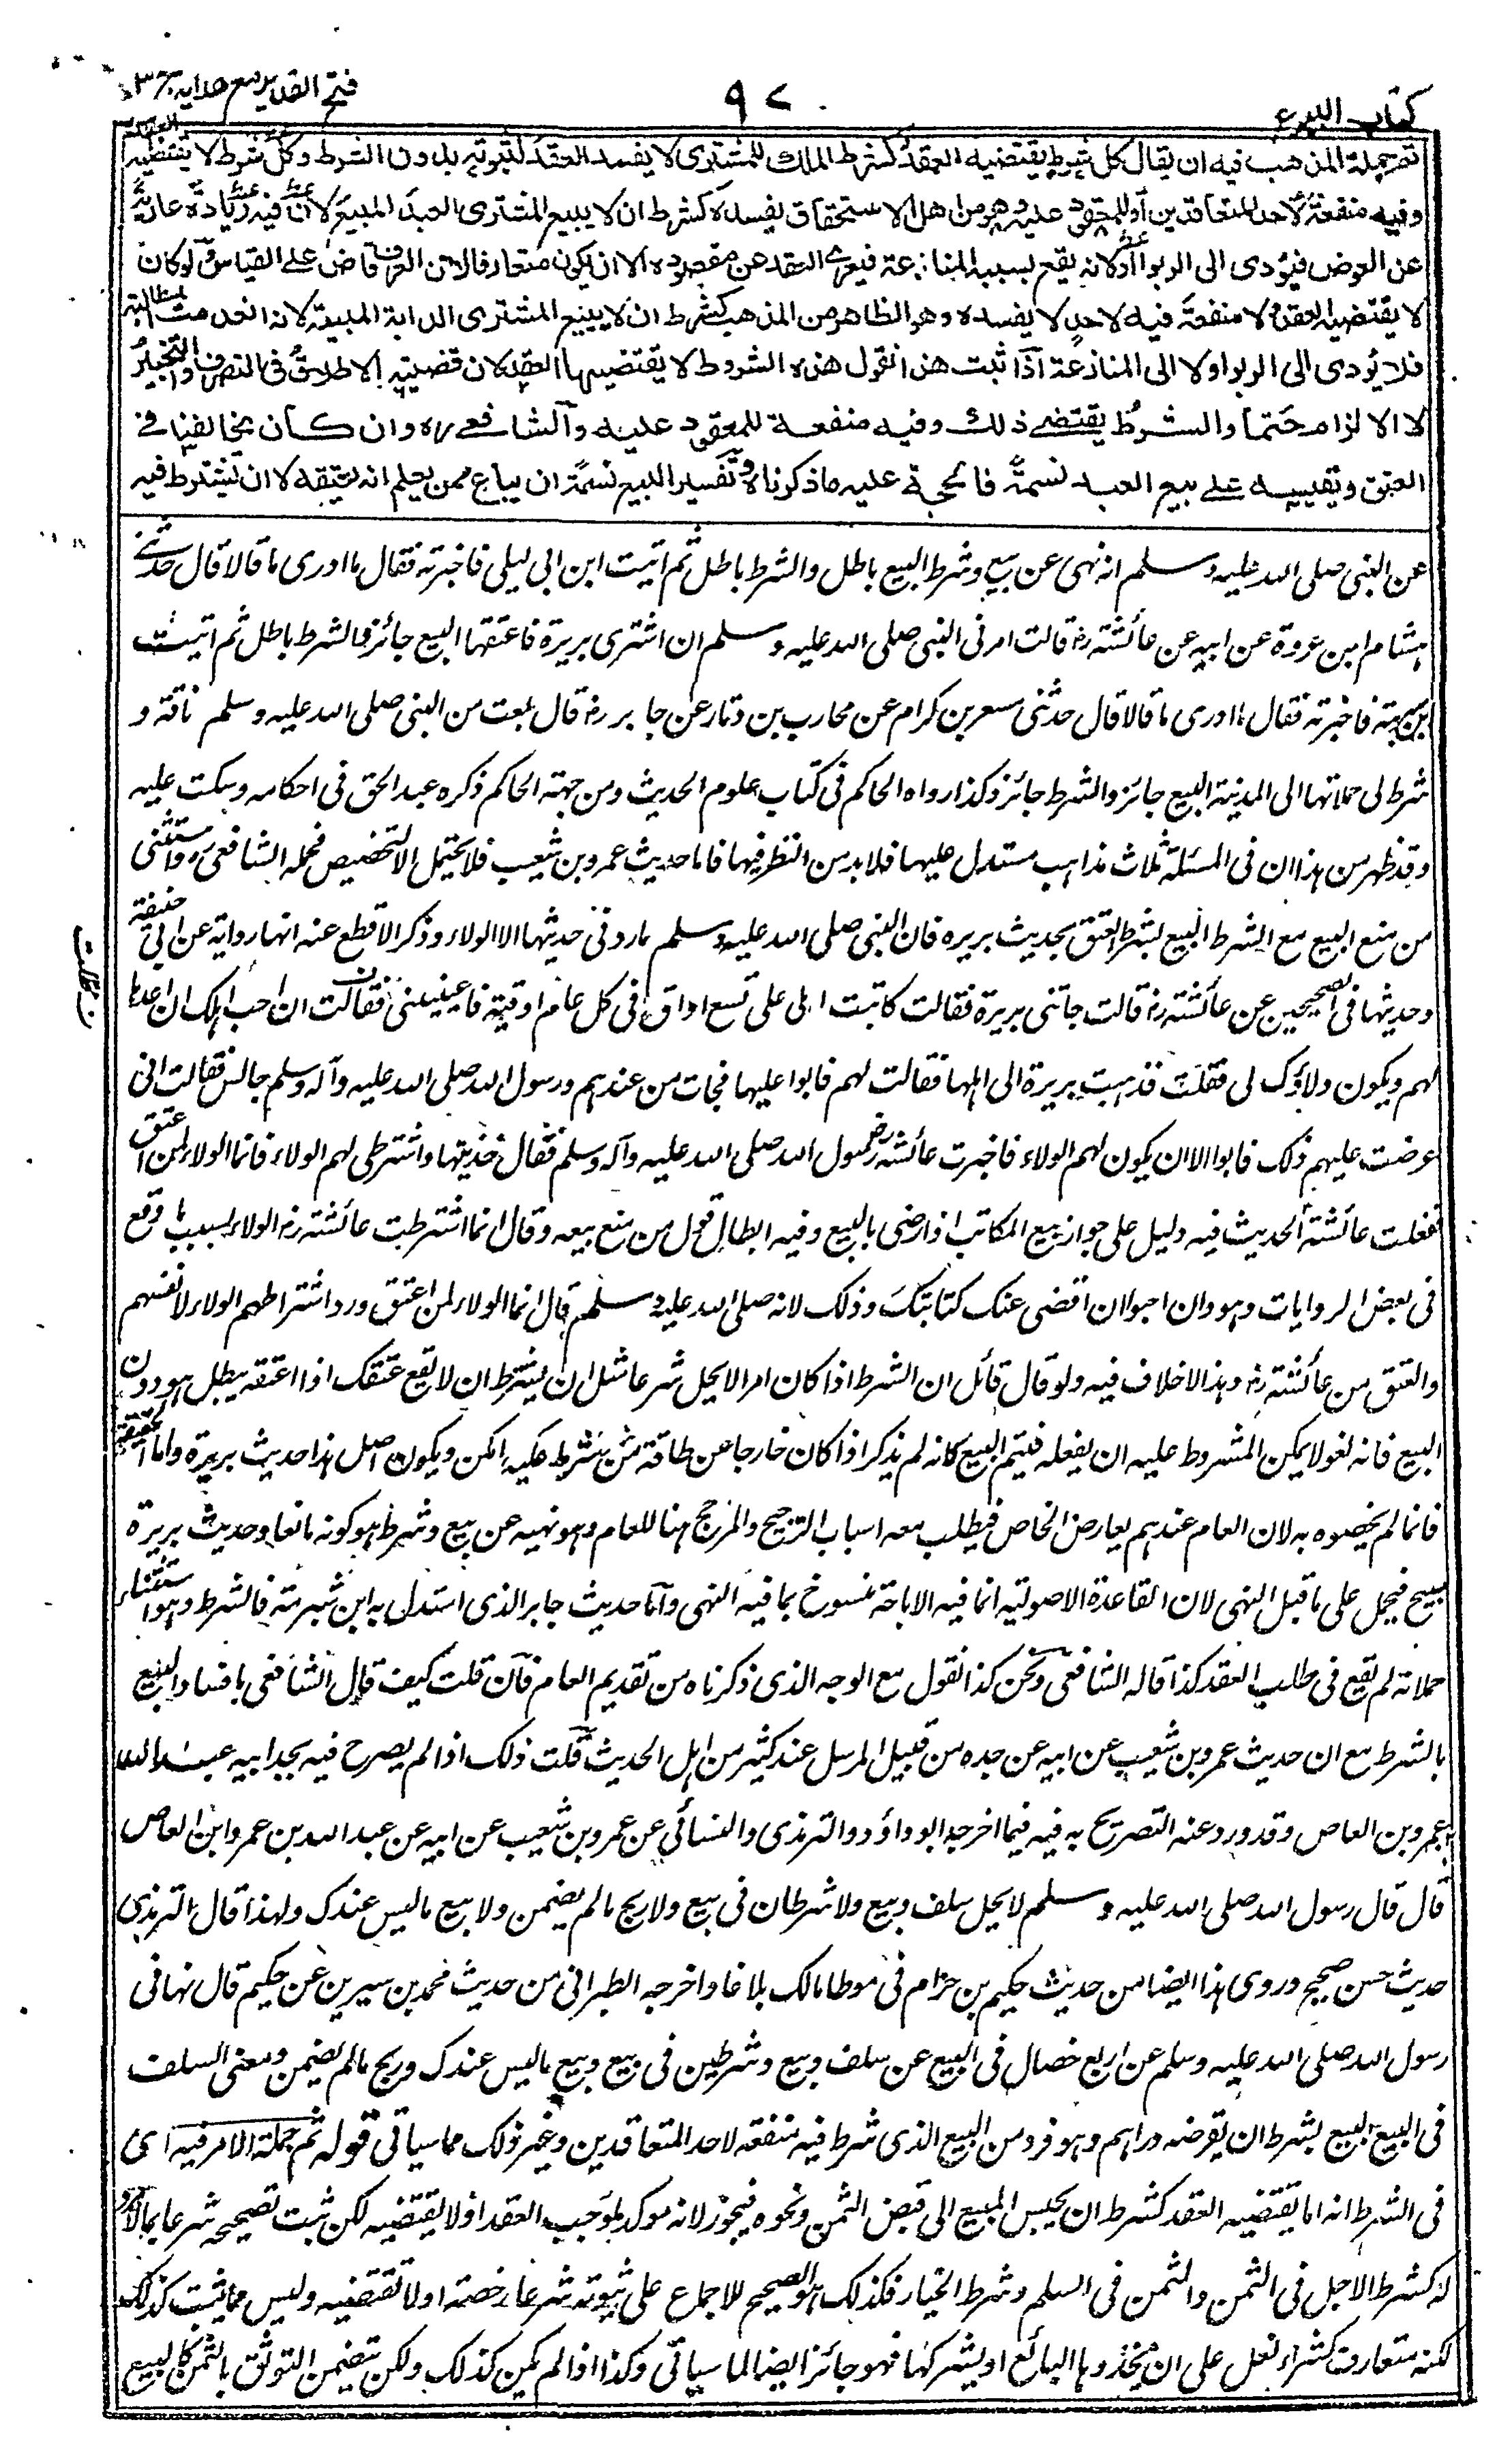 كتاب البيوع
٩٧
فتح القدير مع هدايه ج ٣
ثم جملة المذهب فيه ان يقال كل شرط يقتضيه العقد كشرط الملك للمشتري لا يفسد العقد لثبوته بدون الشرط وكل شرط لا يقتضيه العقد
وفيه منفعة لاحد المتعاقدين او للمعقود عليه وهو من اهل الاستحقاق يفسده كشرط ان لا يبيع المشتري العبد المبيع لان فيه زيادة عارية
عن العوض فيؤدى الى الربوا او لانه يقع بسببه المنازعة فيعرى العقد عن مقصوده الا ان يكون متعارفا لان العرف قاض على القياس ولو كان
لا يقتضيه العقد ولا منفعة فيه لاحد لا يفسده وهو الظاهر من المذهب كشرط ان لا يبيع المشتري الدابة المبيعة لانه انعدمت المطالبة
فلا يؤدى الى الربوا ولا الى المنازعة اذا ثبت هذا فنقول هذه الشروط لا يقتضيها العقد لان قضيته الاطلاق فى التصرف والتخيير
لا الالزام حتما والشرط يقتضى ذلك وفيه منفعة للمعقود عليه والشافعى ره وان كان يخالفنا فى
العتق ويقيسه على بيع العبد نسمة فالحجة عليه ما ذكرناه وتفسير البيع نسمة ان يباع ممن يعلم انه يعتقه لا ان يشترط فيه
عن النبى صلى الله عليه وسلم انه نهى عن بيع وشرط البيع باطل والشرط باطل ثم اتيت ابن ابى ليلى فاخبرته فقال ما ادرى ما قالا قال حدثنى
هشام ابن عروة عن ابيه عن عائشة رض قالت امرنى النبى صلى الله عليه وسلم ان اشترى بريرة فاعتقها البيع جائز والشرط باطل ثم اتيت
ابن شبرمة فاخبرته فقال ما ادرى ما قالا قال حدثنى مسعر بن كرام عن محارب بن دثار عن جابر رض قال بعت من النبى صلى الله عليه وسلم ناقة و
شرط لى حملانها الى المدينة البيع جائز والشرط جائز وكذا رواه الحاكم فى كتاب علوم الحديث ومن جهة الحاكم ذكره عبد الحق فى احكامه وسكت عليه
وقد ظهر من هذا ان فى المسئلة ثلاث مذاهب مستدل عليها فلا بد من النظر فيها فاما حديث عمرو بن شعيب فلا يحتمل الا التخصيص فحمله الشافعى ره واستثنى
من منع البيع مع الشرط البيع بشرط العتق بحديث بريره فان النبى صلى الله عليه وسلم ما رد فى حديثها الا الولاء وذكر الاقطع عنه انها رواية عن ابى حنيفة
وحديثها فى الصحيحين عن عائشة رض قالت جاءتنى بريرة فقالت كاتبت اهلى على تسع اواق فى كل عام اوقية فاعينينى فقالت ان احب اهلك ان اعدها
لهم ويكون ولاؤك لى فعلت فذهبت بريرة الى اهلها فقالت لهم فابوا عليها فجاءت من عندهم ورسول الله صلى الله عليه وآله وسلم جالس فقالت انى
عرضت عليهم ذلك فابوا الا ان يكون لهم الولاء فاخبرت عائشة رض رسول الله صلى الله عليه وآله وسلم فقال خذيها واشترطى لهم الولاء فانما الولاء لمن اعتق
ففعلت عائشة الحديث فيه دليل على جواز بيع المكاتب اذا رضى بالبيع وفيه ابطال قول من منع بيعه وقال انما اشترطت عائشة رض الولاء بسبب ما وقع
فى بعض الروايات وهو وان احبوا ان اقضى عنك كتابتك وذلك لانه صلى الله عليه وسلم قال انما الولاء لمن اعتق ورد اشتراطهم الولاء لانفسهم
والعتق من عائشة رض وهذا لا خلاف فيه ولو قال قائل ان الشرط اذا كان امرا لا يحل شرعا مثل ان يشترط ان لا يقع عتقك اذا اعتقه يبطل هو دون
البيع فانه لغو لا يمكن المشروط عليه ان يفعله فيتم البيع كانه لم يذكر اذا كان خارجا عن طاقة من شرط عليه امكن ويكون اصل هذا حديث بريرة واما الحنفية
فانما لم يخصوه به لان العام عندهم يعارض الخاص فيطلب معه اسباب الترجيح والمرجح هنا للعام وهو نهيه عن بيع وشرط هو كونه مانعا وحديث بريرة
مبيح فيحمل على ما قبل النهى لان القاعدة الاصولية انما فيه الاباحة منسوخ بما فيه النهى واما حديث جابر الذى استدل به ابن شبرمة فالشرط وهو استثناء
حملانه لم يقع فى صلب العقد كذا قاله الشافعى ونحن كذا نقول مع الوجه الذى ذكرناه من تقديم العام فان قلت كيف قال الشافعى بافساد البيع
بالشرط مع ان حديث عمرو بن شعيب عن ابيه عن جده من قبيل المرسل عند كثير من اهل الحديث قلت ذلك اذا لم يصرح فيه بجد ابيه عبد الله
بن عمرو بن العاص وقد ورد عنه التصريح به فيه فيما اخرجه ابو داؤد والترمذى والنسائى عن عمرو بن شعيب عن ابيه عن عبد الله بن عمرو ابن العاص
قال قال رسول الله صلى الله عليه وسلم لا يحل سلف وبيع ولا شرطان فى بيع ولا ربح ما لم يضمن ولا بيع ما ليس عندك ولهذا قال الترمذى
حديث حسن صحيح وروى هذا ايضا من حديث حكيم بن حزام فى موطا مالك بلاغا واخرجه الطبرانى من حديث محمد بن سيرين عن حكيم قال نهانى
رسول الله صلى الله عليه وسلم عن اربع خصال فى البيع عن سلف وبيع وشرطين فى بيع وبيع ما ليس عندك وربح ما لم يضمن ومعنى السلف
فى البيع البيع بشرط ان يقرضه دراهم وهو فرد من البيع الذى شرط فيه منفعة لاحد المتعاقدين وغير ذلك مما سياتى قوله ثم جملة الامر فيه اى
فى الشرط انه اما يقتضيه العقد كشرط ان يحبس المبيع الى قبض الثمن ونحوه فيجوز لانه موكد لموجب العقد او لا يقتضيه لكن ثبت تصحيحه شرعا بما لا مرد
له كشرط الاجل فى الثمن والمثمن فى السلم وشرط الخيار فكذلك هو الصحيح للاجماع على ثبوته شرعا رخصة او لا تقتضيه وليس مما ثبت كذلك
لكنه متعارف كشراء نعل على ان يحذوها البائع او يشركها فهو جائز ايضا لما سياتى وكذا اذا لم يكن كذلك ولكن تضمن التوثق بالثمن كالبيع